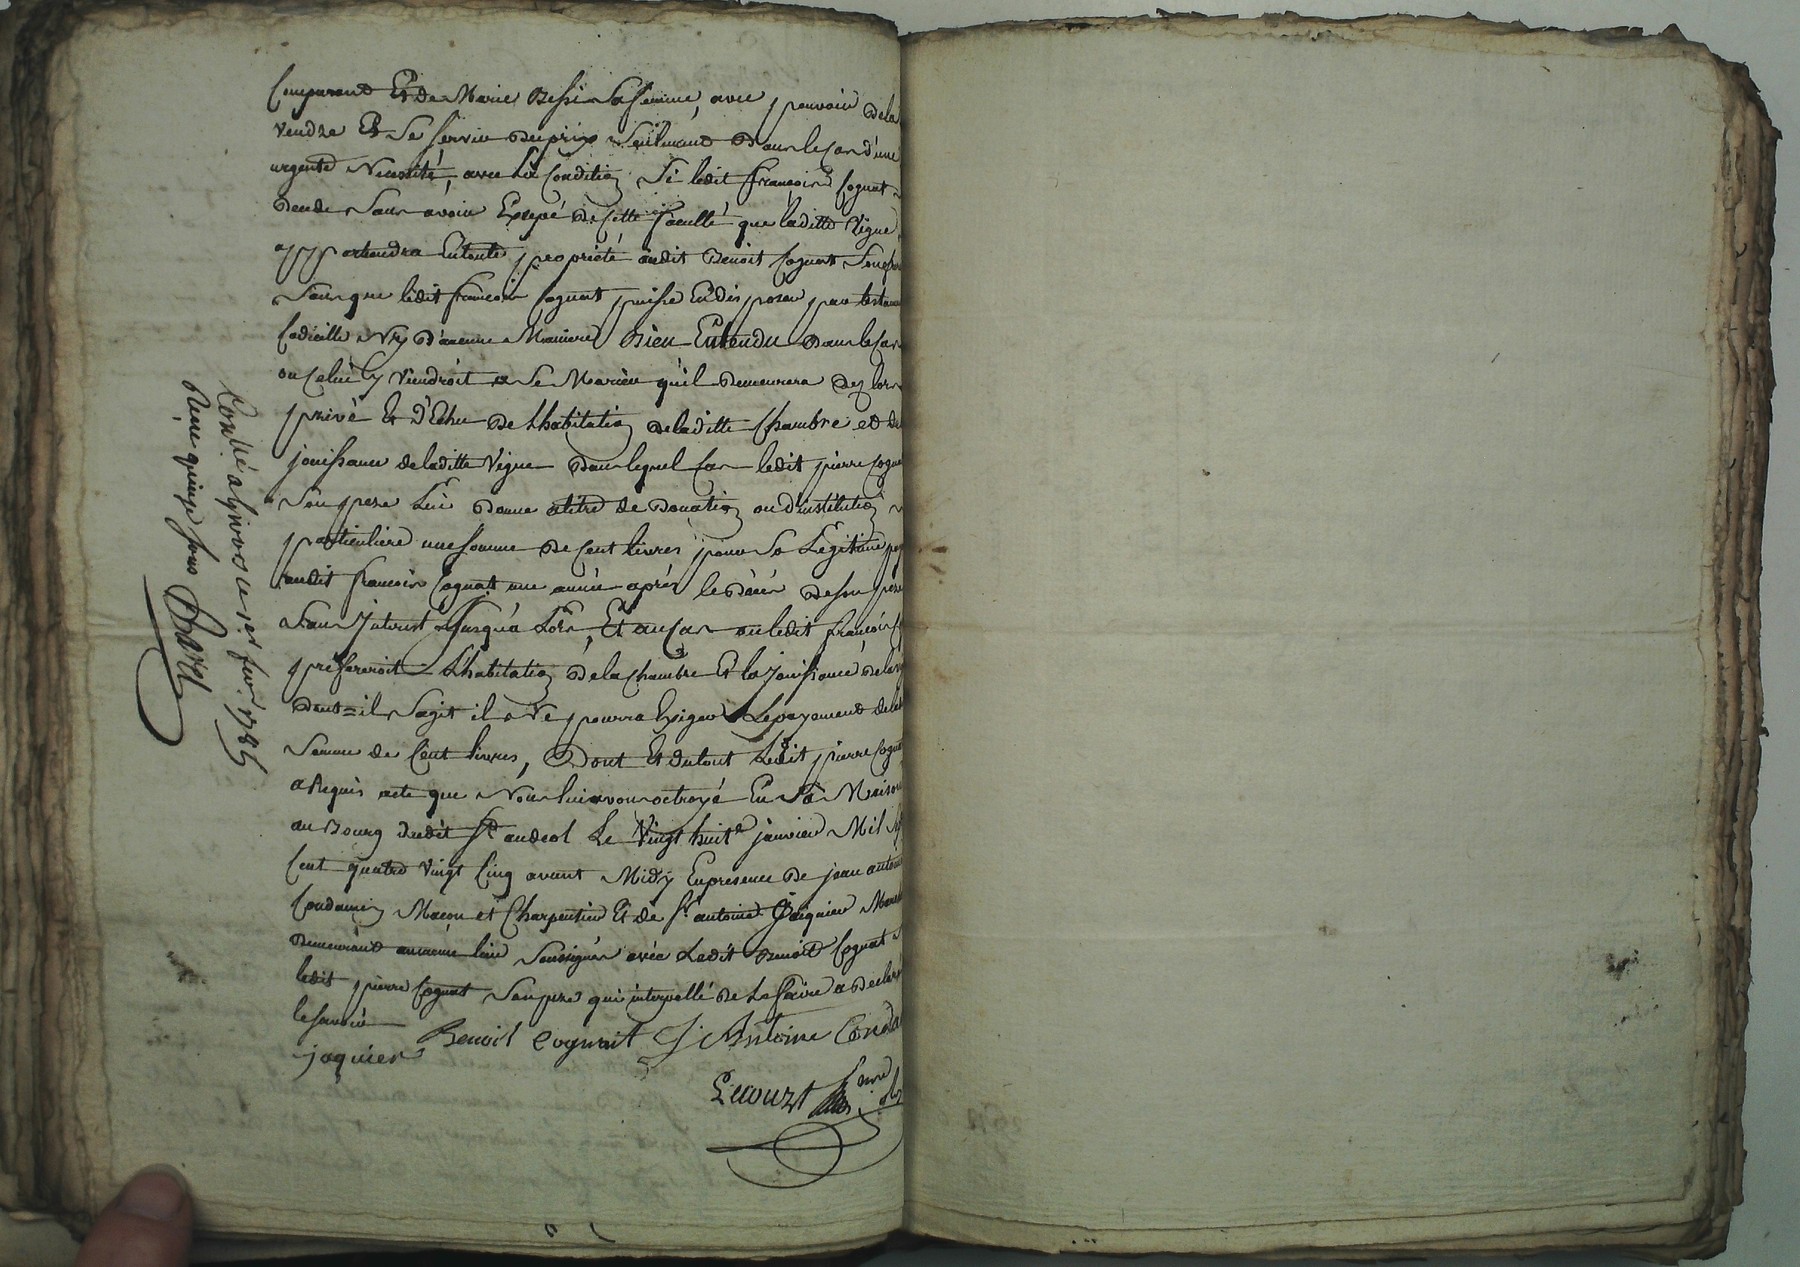 Comparant Et de Marie Bessi Sa femme, avec pouvoir dela
vendre Et Se servir du prix Seulement Dans le Cas d'une
urgente Necessité, avec La Condition Si ledit françois Cognat
decede Sans avoir De Cette faculté que laditte Vigne
appartiendra En toute propriété audit Benoit Cognat Son frere
Sans que ledit françois Cognat puisse En disposer par testament
Codicille Ny D'aucune Maniere Bien Entendu Dans le Cas
ou Celui Cy Viendroit a Se Marier qu'il Demeurera Dez lors
privé Et D'Echu De Lhabitation Deladitte Chambre et de
jouissance deladitte Vigne Dans lequel Cas ledit pierre Cognat
Son pere Lui Donne atitre de Donation ou d'institution
particuliere une somme De Cent livres pour Sa Légitime
audit françois Cognat une année aprés le Décés De son pere
Sans Interest Jusqu'a Lors, Et au Cas ou ledit françois
prefereroit Lhabitation de la chambre Et la Jouissance dela
Dont=il Sagit il Ne pourra Exiger Le payement dela
Somme de Cent livres, Dont Et du tout Ledit pierre Cognat
a Requis acte que Nous lui avons octroyé En Sa Maison
au Bourg dudit St andeol Le Vingt huit janvier Mil
Cent quatre Vingt Cinq avant Midy En presence De jean antoine
Condamin Macon et Charpentier Et de St antoine Jaiquier
Demeurant au même lieu Soussignés avec Ledit Benoit Cognat
ledit pierre Cognat Son pere qui interpellé De Le faire a Declaré
le Savoir
Benoit Cognait J Antoine Conda
jaquier
Lecourt
Conlé a givors ce 1er fevr 1785
Reçu quinze sous